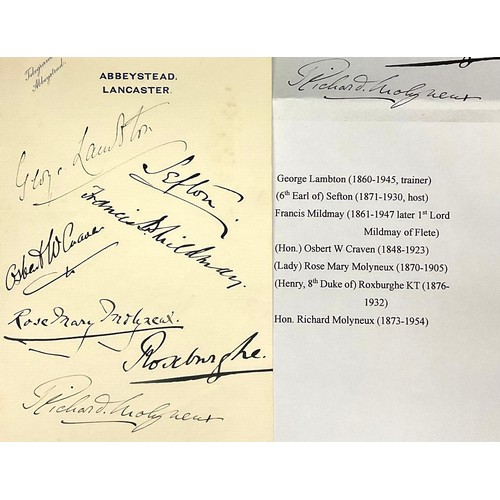 Telegrams
Abbeystead.
ABBEYSTEAD,
LANCASTER.
George Lambton
Sefton
Francis B. Mildmay
Osbert W Craven
Rose Mary Molyneux
Roxburghe.
Richard. Molyneux
Richard. Molyneux
George Lambton (1860-1945, trainer)
(6th Earl of) Sefton (1871-1930, host)
Francis Mildmay (1861-1947 later 1st Lord
Mildmay of Flete)
(Hon.) Osbert W Craven (1848-1923)
(Lady) Rose Mary Molyneux (1870-1905)
(Henry, 8th Duke of) Roxburghe KT (1876-
1932)
Hon. Richard Molyneux (1873-1954)